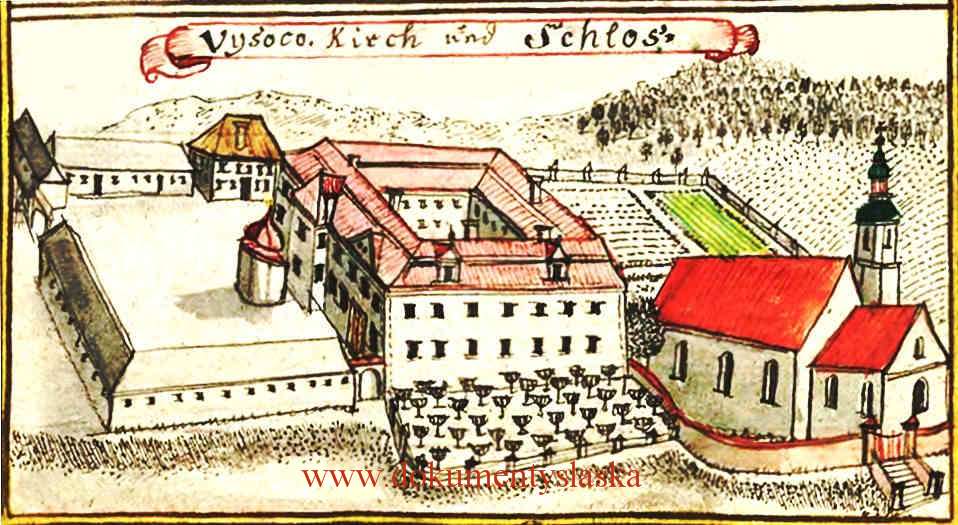 Vysoco. Kirch und Schlos=
www.dokumentyslaska